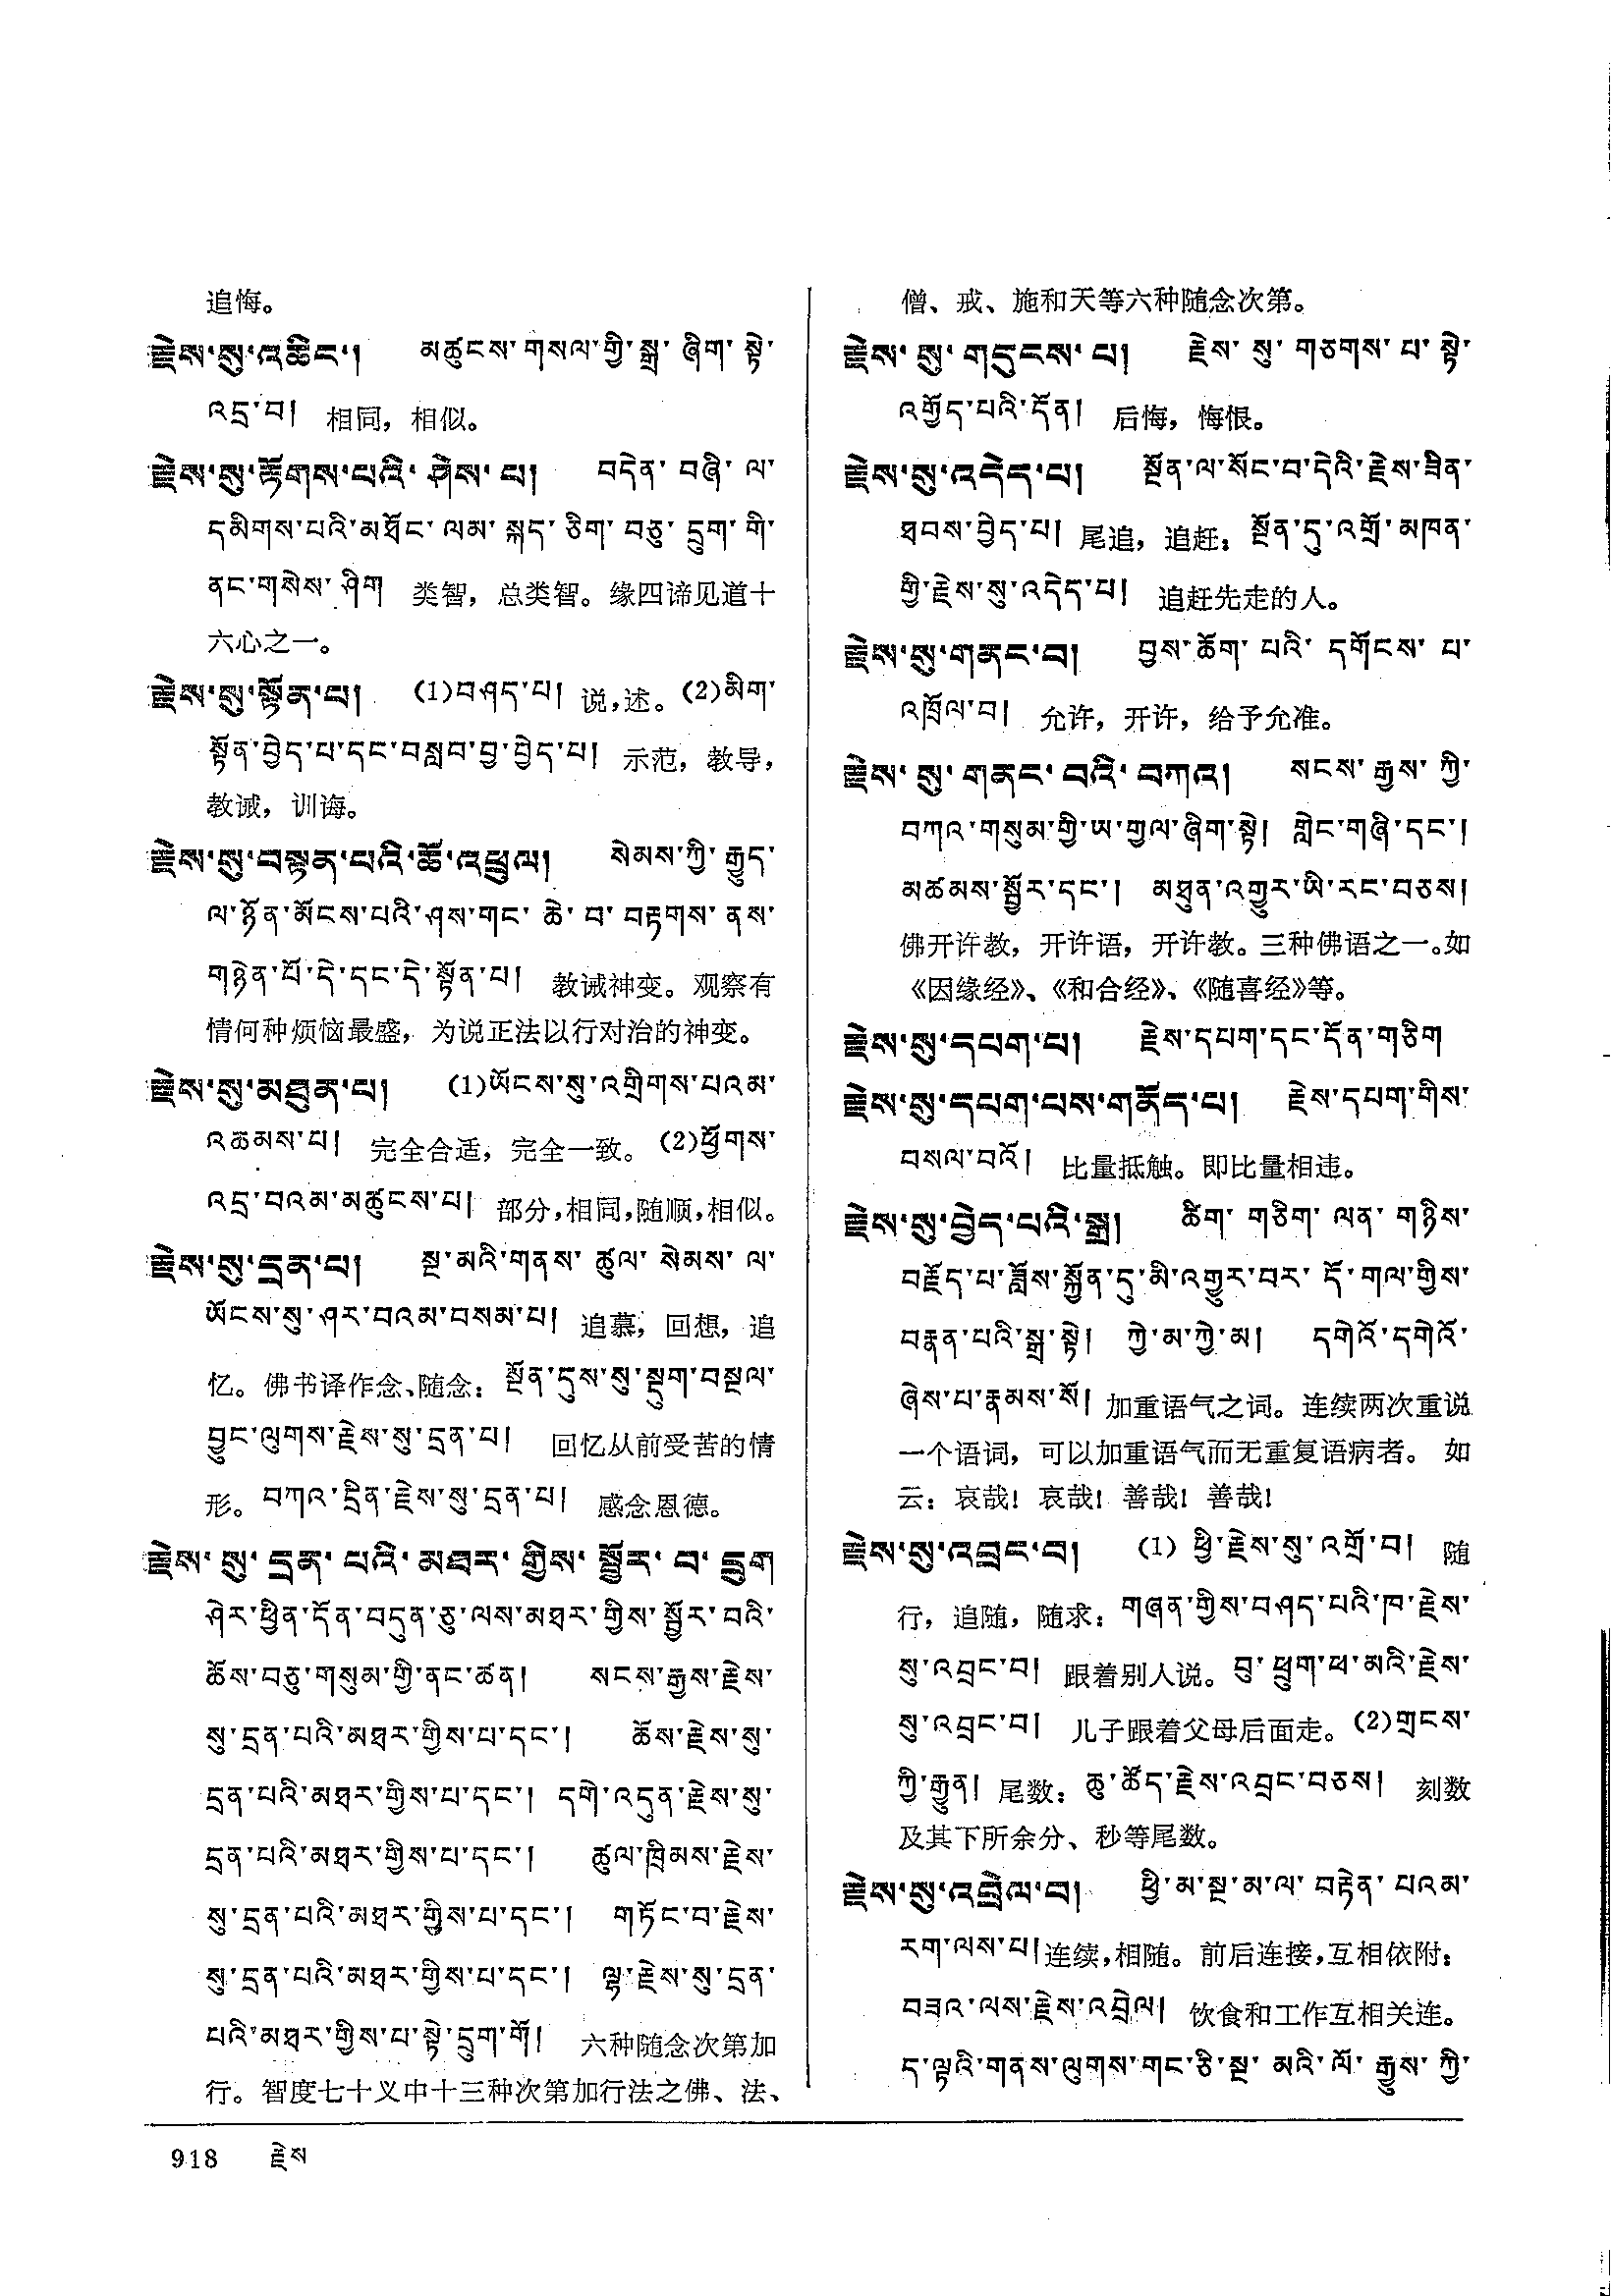 追悔。
རྗེས་སུ་འཆིང་། མཚུངས་གསལ་གྱི་སྒྲ་ ཞིག་ སྟེ་
འདྲ་བ། 相同，相似。
རྗེས་སུ་རྟོགས་པའི་ ཤེས་ པ། བདེན་ བཞི་ ལ་
དམིགས་པའི་མཐོང་ ལམ་ སྐད་ ཅིག་ བཅུ་ དྲུག་ གི་
ནང་གསེས་ ཤིག 类智，总类智。缘四谛见道十
六心之一。
རྗེས་སུ་སྟོན་པ། (1)བཤད་པ། 说，述。(2)མིག་
སྟོན་བྱེད་པ་དང་བསླབ་བྱ་བྱེད་པ། 示范，教导，
教诫，训诲。
རྗེས་སུ་བསྟན་པའི་ཆོ་འཕྲུལ། སེམས་ཀྱི་ རྒྱུད་
ལ་ཉོན་མོངས་པའི་ཤས་གང་ ཆེ་ བ་ བརྟགས་ ནས་
གཉེན་པོ་དེ་དང་དེ་སྟོན་པ། 教诫神变。观察有
情何种烦恼最盛，为说正法以行对治的神变。
རྗེས་སུ་མཐུན་པ། (1)ཡོངས་སུ་འགྲིགས་པའམ་
འཆམས་པ། 完全合适，完全一致。(2)ཕྱོགས་
འདྲ་བའམ་མཚུངས་པ། 部分，相同，随顺，相似。
རྗེས་སུ་དྲན་པ། སྔ་མའི་གནས་ ཚུལ་ སེམས་ ལ་
ཡོངས་སུ་ཤར་བའམ་བསམ་པ། 追慕，回想，追
忆。佛书译作念、随念：སྔོན་དུས་སུ་སྡུག་བསྔལ་
བྱུང་ལུགས་རྗེས་སུ་དྲན་པ། 回忆从前受苦的情
形。བཀའ་དྲིན་རྗེས་སུ་དྲན་པ། 感念恩德。
རྗེས་ སུ་ དྲན་ པའི་ མཐར་ གྱིས་ སྦྱོར་ བ་ དྲུག
ཤེར་ཕྱིན་དོན་བདུན་ཅུ་ལས་མཐར་གྱིས་སྦྱོར་བའི་
ཆོས་བཅུ་གསུམ་གྱི་ནང་ཚན། སངས་རྒྱས་རྗེས་
སུ་དྲན་པའི་མཐར་གྱིས་པ་དང་། ཆོས་རྗེས་སུ་
དྲན་པའི་མཐར་གྱིས་པ་དང་། དགེ་འདུན་རྗེས་སུ་
དྲན་པའི་མཐར་གྱིས་པ་དང་། ཚུལ་ཁྲིམས་རྗེས་
སུ་དྲན་པའི་མཐར་གྱིས་པ་དང་། གཏོང་བ་རྗེས་
སུ་དྲན་པའི་མཐར་གྱིས་པ་དང་། ལྷ་རྗེས་སུ་དྲན་
པའི་མཐར་གྱིས་པ་སྟེ་དྲུག་གོ། 六种随念次第加
行。智度七十义中十三种次第加行法之佛、法、
僧、戒、施和天等六种随念次第。
རྗེས་ སུ་ གདུངས་ པ། རྗེས་ སུ་ གཅགས་ པ་ སྟེ་
འགྱོད་པའི་དོན། 后悔，悔恨。
རྗེས་སུ་འདེད་པ། སྔོན་ལ་སོང་བ་དེའི་རྗེས་ཟིན་
ཐབས་བྱེད་པ། 尾追，追赶：སྔོན་དུ་འགྲོ་མཁན་
གྱི་རྗེས་སུ་འདེད་པ། 追赶先走的人。
རྗེས་སུ་གནང་བ། བྱས་ཆོག་ པའི་ དགོངས་ པ་
འཁྲོལ་བ། 允许，开许，给予允准。
རྗེས་ སུ་ གནང་ བའི་ བཀའ། སངས་ རྒྱས་ ཀྱི་
བཀའ་གསུམ་གྱི་ཨ་གྱལ་ཞིག་སྟེ། གླེང་གཞི་དང་།
མཚམས་སྦྱོར་དང་། མཐུན་འགྱུར་ཡི་རང་བཅས།
佛开许教，开许语，开许教。三种佛语之一。如
《因缘经》、《和合经》、《随喜经》等。
རྗེས་སུ་དཔག་པ། རྗེས་དཔག་དང་དོན་གཅིག
རྗེས་སུ་དཔག་པས་གནོད་པ། རྗེས་དཔག་གིས་
བསལ་བའོ། 比量抵触。即比量相违。
རྗེས་སུ་བྱེད་པའི་སྒྲ། ཚིག་ གཅིག་ ལན་ གཉིས་
བརྗོད་པ་ཟློས་སྐྱོན་དུ་མི་འགྱུར་བར་ དོ་གལ་གྱིས་
བརྣན་པའི་སྒྲ་སྟེ། ཀྱེ་མ་ཀྱེ་མ། དགེའོ་དགེའོ་
ཞེས་པ་རྣམས་སོ། 加重语气之词。连续两次重说
一个语词，可以加重语气而无重复语病者。如
云：哀哉！哀哉！善哉！善哉！
རྗེས་སུ་འབྲང་བ། (1) ཕྱི་རྗེས་སུ་འགྲོ་བ། 随
行，追随，随求：གཞན་གྱིས་བཤད་པའི་ཁ་རྗེས་
སུ་འབྲང་བ། 跟着别人说。བུ་ ཕྲུག་ཕ་མའི་རྗེས་
སུ་འབྲང་བ། 儿子跟着父母后面走。(2)གྲངས་
ཀྱི་རྒྱུན། 尾数：ཆུ་ཚོད་རྗེས་འབྲང་བཅས། 刻数
及其下所余分、秒等尾数。
རྗེས་སུ་འབྲེལ་བ། ཕྱི་མ་སྔ་མ་ལ་ བརྟེན་ པའམ་
རག་ལས་པ།连续，相随。前后连接，互相依附：
བཟའ་ལས་རྗེས་འབྲེལ། 饮食和工作互相关连。
ད་ལྟའི་གནས་ལུགས་གང་ཅི་སྔ་ མའི་ ལོ་ རྒྱུས་ ཀྱི་
918 རྗེས